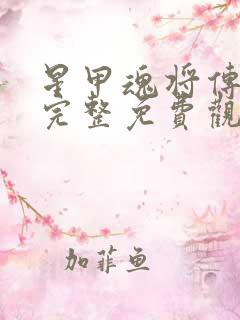 星甲魂将傳
完整免費觀
加菲鱼